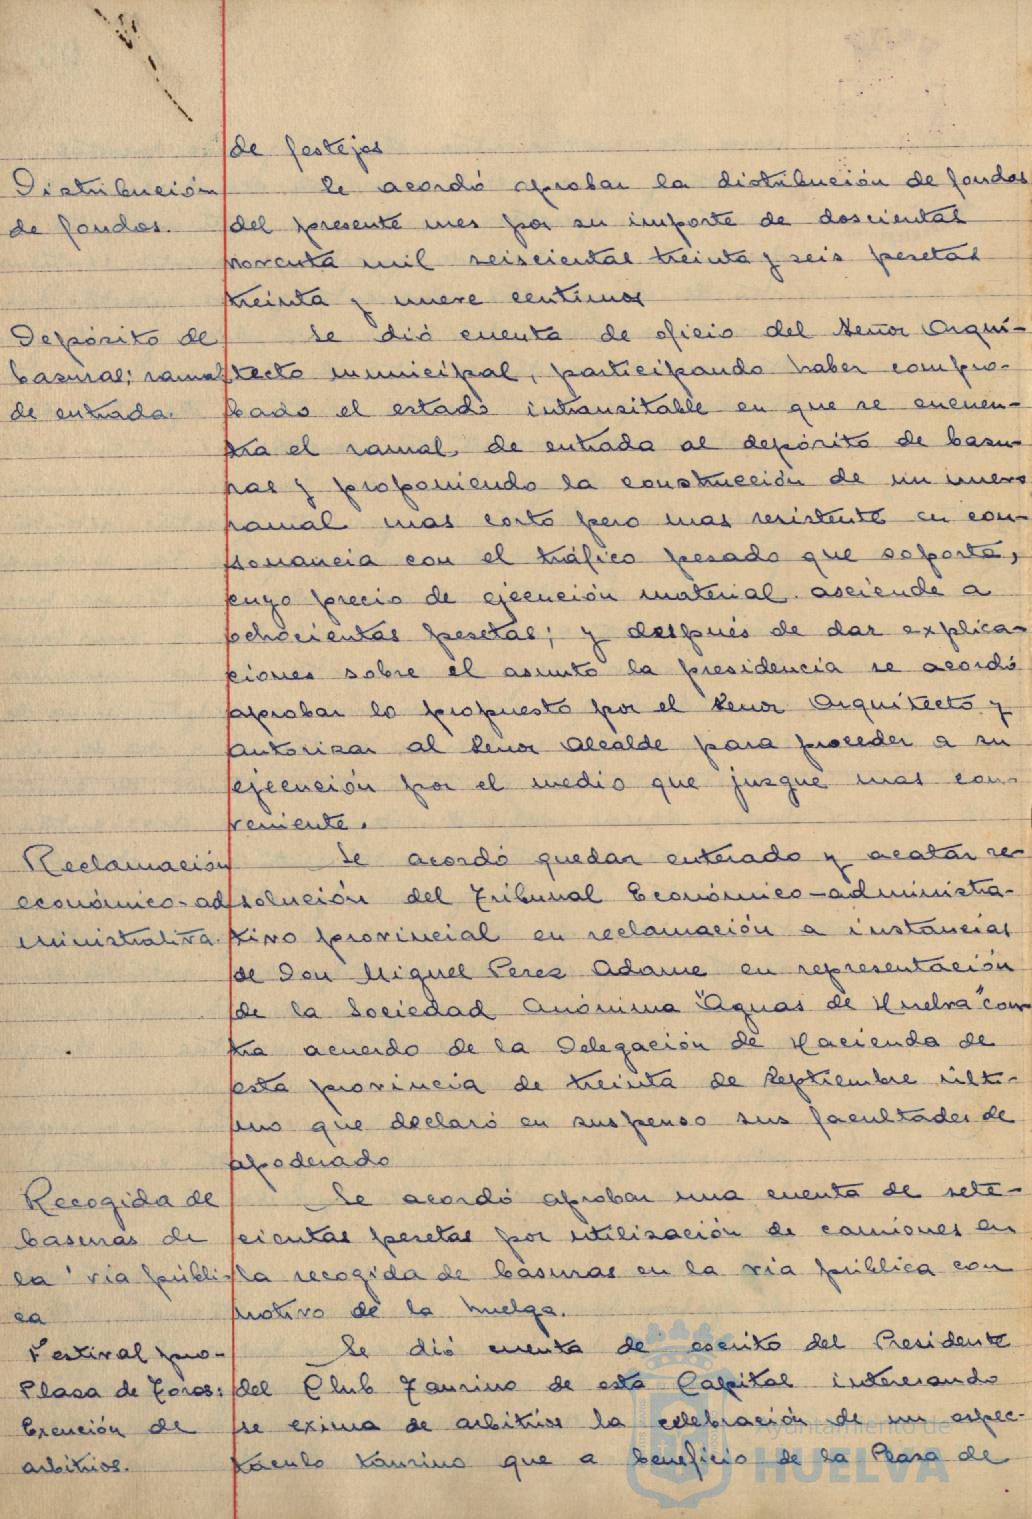 de festejos
Distribución
de fondos.
Se acordó aprobar la distribución de fondos
del presente mes por su importe de doscientas
noventa mil seiscientas treinta y seis pesetas
treinta y nueve centimos
Depósito de
basuras; ramal
de entrada.
Se dió cuenta de oficio del Señor Arqui-
tecto municipal, participando haber compro-
bado el estado intransitable en que se encuen-
tra el ramal de entrada al depósito de basu-
ras y proponiendo la construcción de un nuevo
ramal mas corto pero mas resistente en con-
sonancia con el tráfico pesado que soporta,
cuyo precio de ejecución material asciende a
ochocientas pesetas; y después de dar explica-
ciones sobre el asunto la presidencia se acordó
aprobar lo propuesto por el Señor Arquitecto y
autorizar al Señor Alcalde para proceder a su
ejecución por el medio que juzgue mas con-
veniente.
Reclamación
económico-ad
ministrativa.
Se acordó quedar enterado y acatar re-
solución del Tribunal Económico-administra-
tivo provincial en reclamación a instancias
de Don Miguel Perez Adame en representación
de la Sociedad Anónima "Aguas de Huelva" con-
tra acuerdo de la Delegación de Hacienda de
esta provincia de treinta de Septiembre últi-
mo que declaró en suspenso sus facultades de
apoderado
Recogida de
basuras de
la via públi-
ca
Se acordó aprobar una cuenta de sete-
cientas pesetas por utilización de camiones en
la recogida de basuras en la via pública con
motivo de la huelga.
Festival pro-
Plaza de Toros:
Exención de
arbitrios.
Se dió cuenta de escrito del Presidente
del Club Taurino de esta Capital interesando
se exima de arbitrios la celebración de un espec-
táculo taurino que a beneficio de la Plaza de
Ayuntamiento de
HUELVA